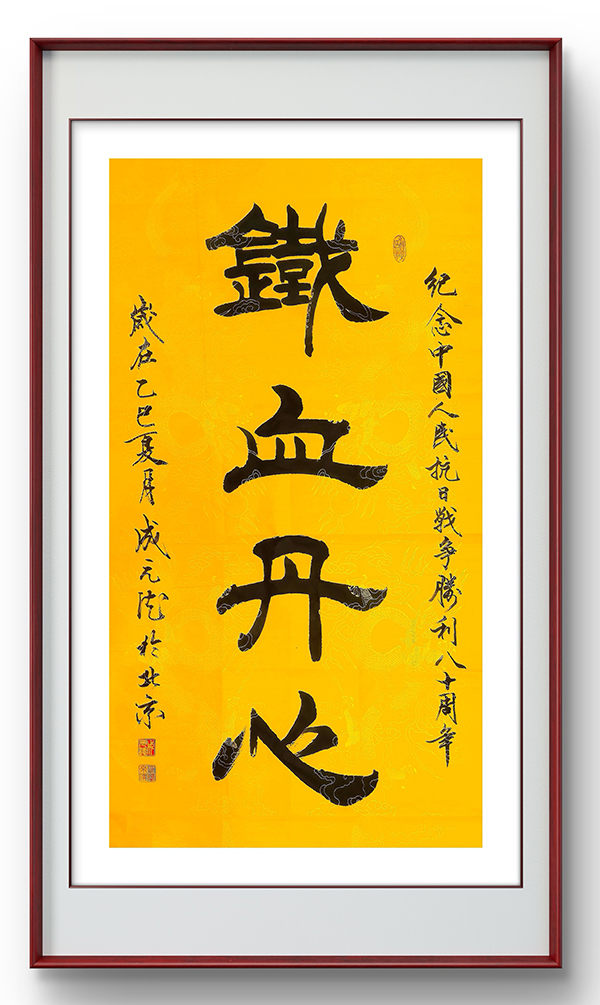 紀念中國人民抗日戰争勝利八十周年
鐵血丹心
歲在乙巳夏月成元於北京